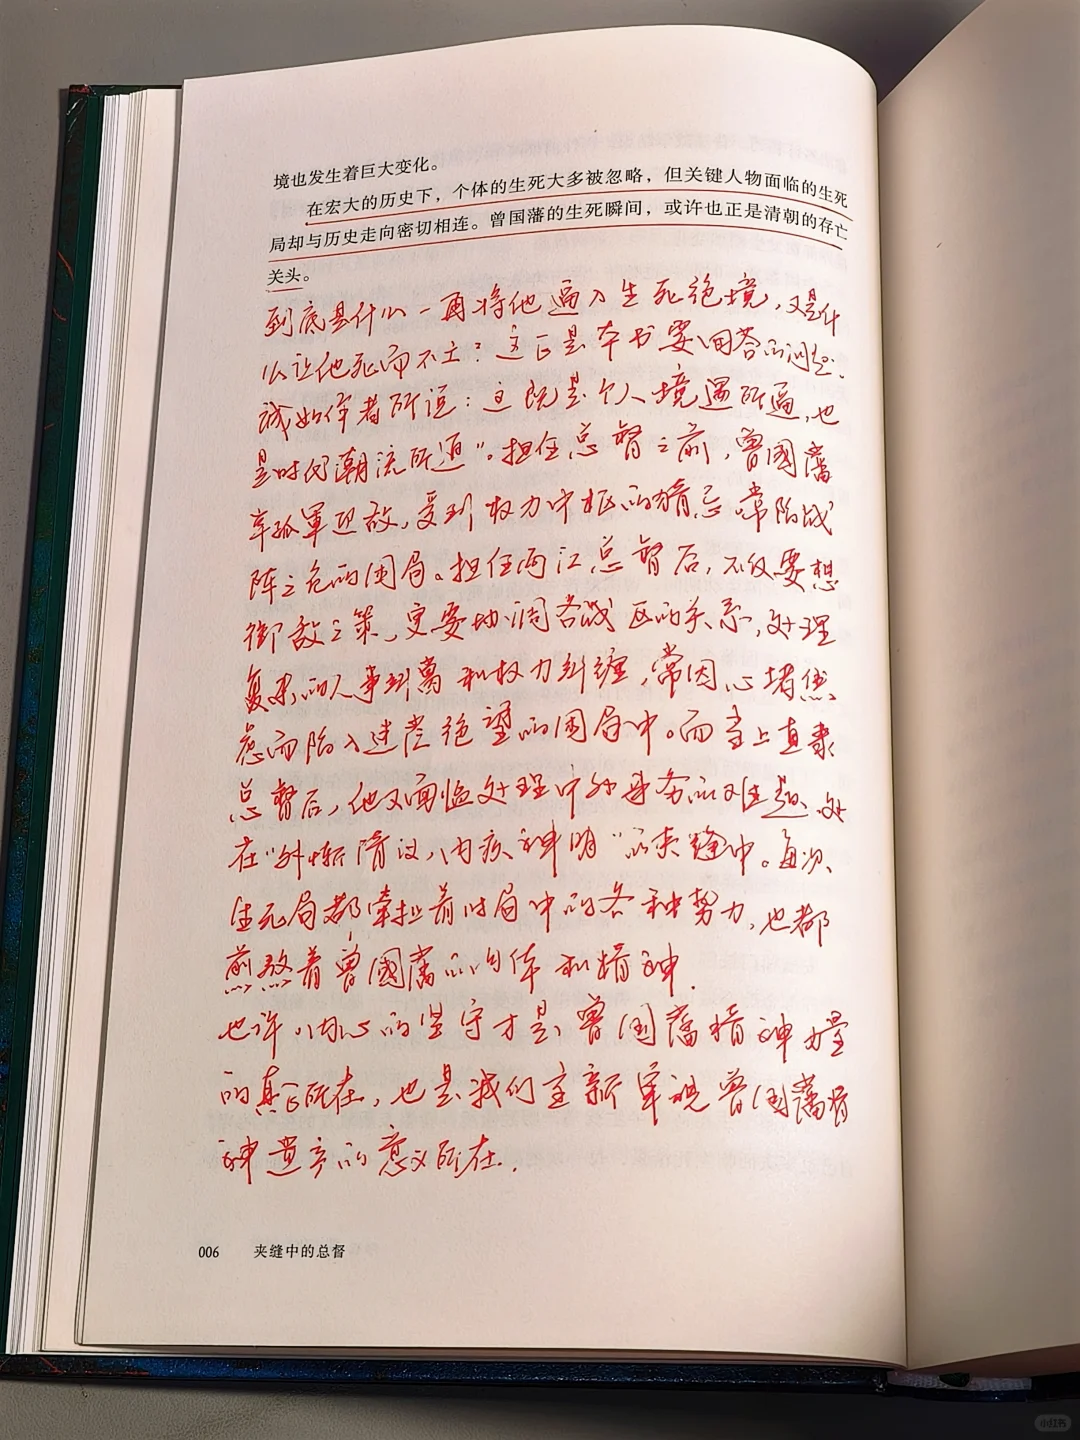 境也发生着巨大变化。
在宏大的历史下，个体的生死大多被忽略，但关键人物面临的生死
局却与历史走向密切相连。曾国藩的生死瞬间，或许也正是清朝的存亡
关头。
到底是什么一再将他逼入生死绝境，又是什
么让他死而不亡？这正是本书要回答的问题。
诚如作者所说：这既是个人境遇所逼，也
是时代潮流所逼”。担任总督之前，曾國藩
率孤軍迎敌，受到权力中枢的猜忌常陷战
阵之危的困局。担任两江总督后，不仅要想
御敌之策，更要协调各战区的关系，处理
复杂的人事纠葛和权力纠缠，常因心堵焦
虑而陷入迷茫绝望的困局中。而当上直隶
总督后，他又面临处理中外事务的难题，处
在“外惭清议，内疚神明”的夹缝中。每次
生死局都牵扯着时局中的各种势力，也都
煎熬着曾國藩的肉体和精神.
也许内心的坚守才是曾国藩精神力量
的真正所在，也是我们重新审视曾国藩精
神遗产的意义所在.
006 夹缝中的总督
小红书